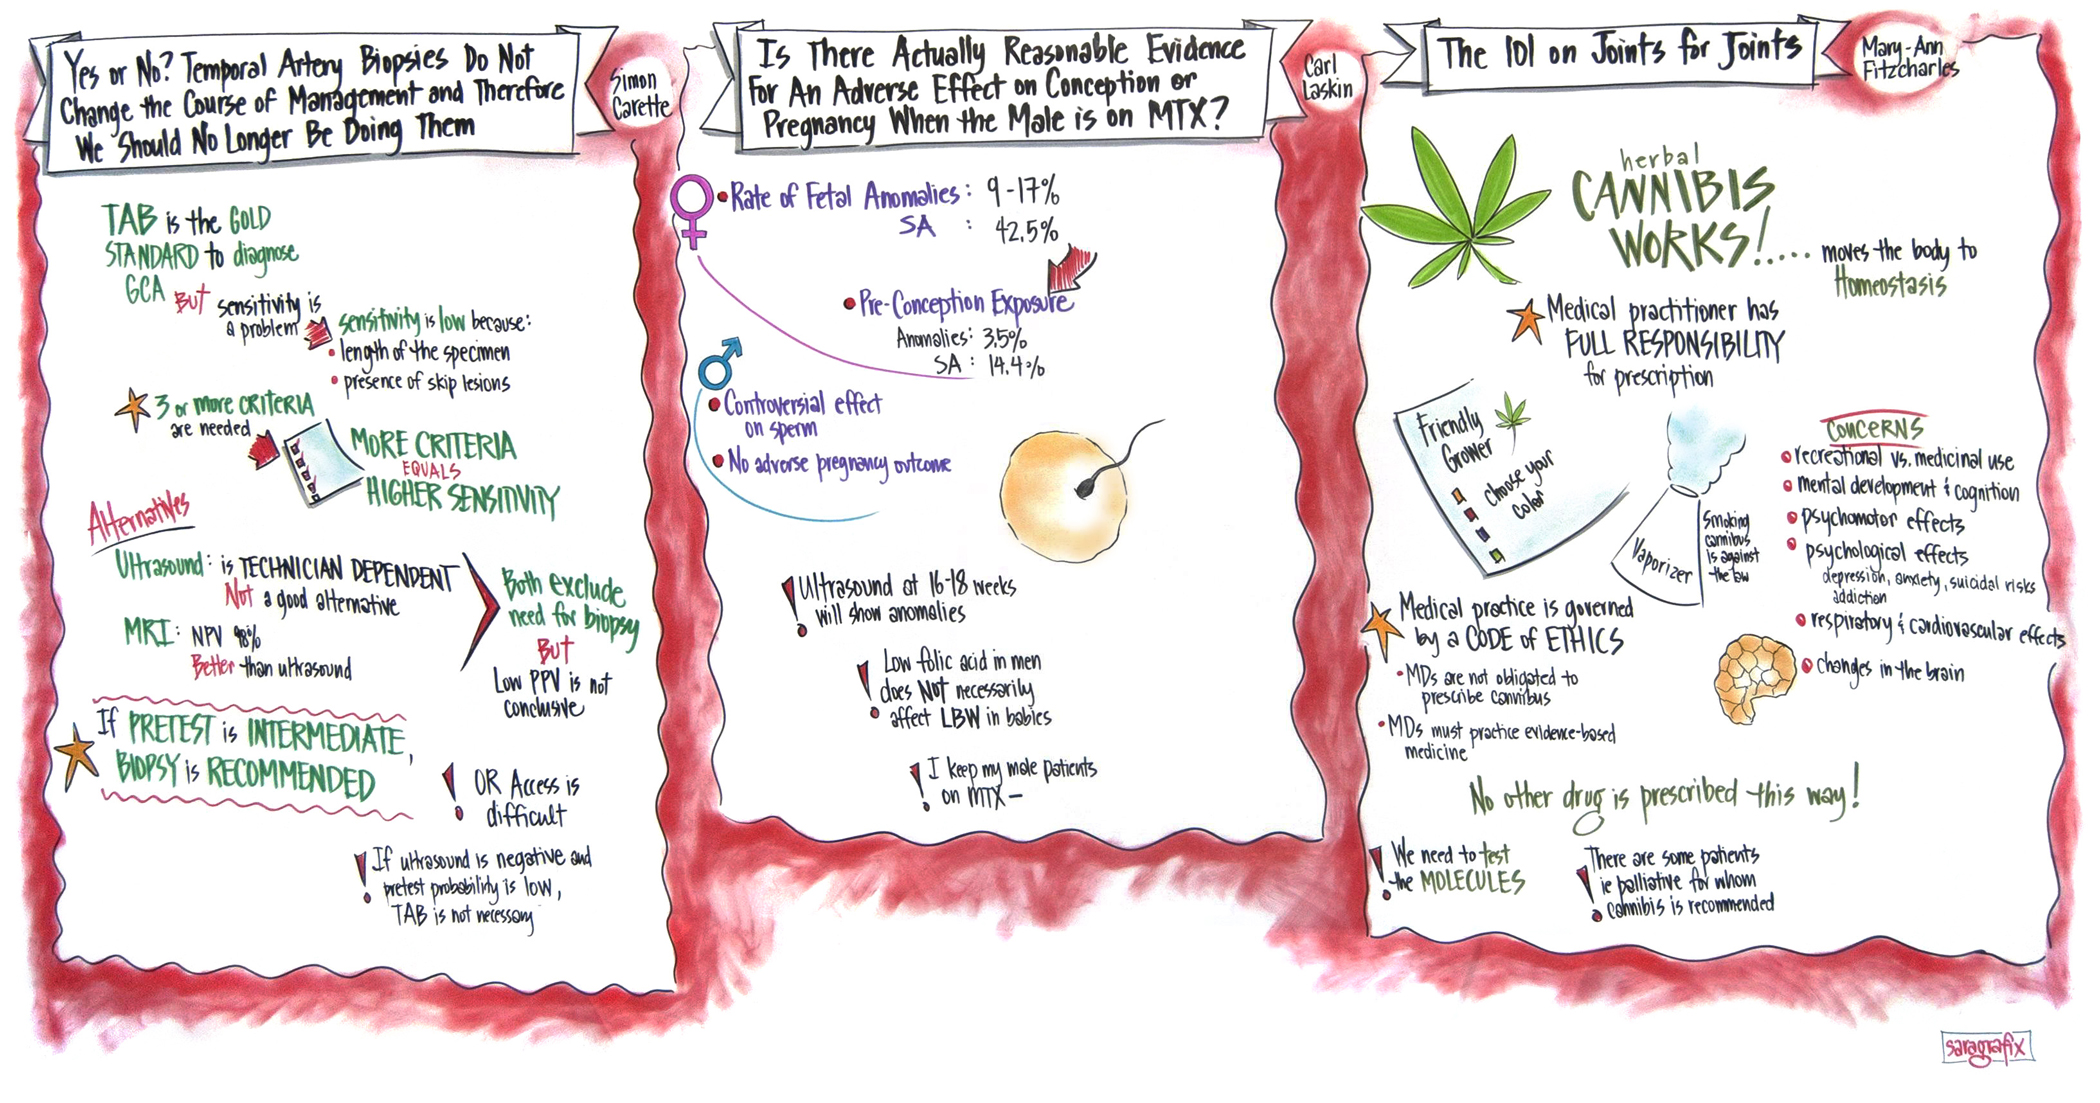 Yes or No? Temporal Artery Biopsies Do Not
Change the Course of Management and Therefore
We Should No Longer Be Doing Them
Simon
Carette
TAB is the GOLD
STANDARD to diagnose
GCA
BUT
sensitivity is
a problem
sensitivity is low because:
length of the specimen
presence of skip lesions
3 or more CRITERIA
are needed
MORE CRITERIA
EQUALS
HIGHER SENSITIVITY
Alternatives
Ultrasound: is TECHNICIAN DEPENDENT
Not a good alternative
MRI: NPV 98%
Better than ultrasound
Both exclude
need for biopsy
BUT
Low PPV is not
conclusive
If PRETEST is INTERMEDIATE,
BIOPSY is RECOMMENDED
! OR Access is
difficult
! If ultrasound is negative and
pretest probability is low,
TAB is not necessary
Is There Actually Reasonable Evidence
For An Adverse Effect on Conception or
Pregnancy When the Male is on MTX?
Carl
Laskin
• Rate of Fetal Anomalies: 9-17%
SA : 42.5%
• Pre-Conception Exposure
Anomalies: 3.5%
SA : 14.4%
• Controversial effect
on sperm
• No adverse pregnancy outcome
! Ultrasound at 16-18 weeks
will show anomalies
! Low folic acid in men
does NOT necessarily
affect LBW in babies
! I keep my male patients
on MTX –
The 101 on Joints for Joints
Mary-Ann
Fitzcharles
herbal
CANNIBIS
WORKS!.....
moves the body to
Homeostasis
Medical practitioner has
FULL RESPONSIBILITY
for prescription
Friendly
Grower
Choose your
color
Vaporizer
Smoking
cannibus
is against
the law
CONCERNS
• recreational vs. medicinal use
• mental development & cognition
• psychomotor effects
• psychological effects
depression, anxiety, suicidal risks
addiction
• respiratory & cardiovascular effects
• changes in the brain
Medical practice is governed
by a CODE of ETHICS
• MDs are not obligated to
prescribe cannibus
• MDs must practice evidence-based
medicine
No other drug is prescribed this way!
! We need to test
the MOLECULES
! There are some patients
ie palliative for whom
cannibis is recommended
saragrafix